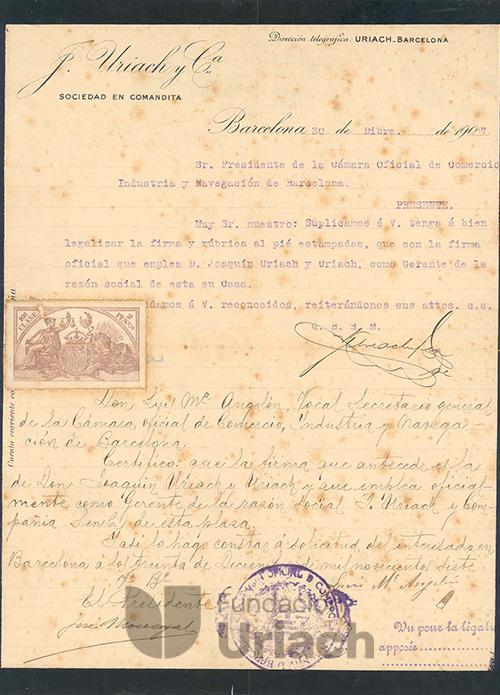 Dirección telegráfica: URIACH-BARCELONA
J. Uriach y Cª
SOCIEDAD EN COMANDITA
Barcelona 30 de Dibre. de 1907
Sr. Presidente de la Cámara Oficial de Comercio
Industria y Navegación de Barcelona.
PRESENTE.
Muy Sr. nuestro: Suplicamos á V. tenga á bien
legalizar la firma y rúbrica al pié estampadas, que son la firma
oficial que emplea D. Joaquin Uriach y Uriach, como Gerente de la
razón social de esta su Casa.
damos á V. reconocidos, reiterándonos sus attos. s.s.
Q. B. S. M.
J Uriach y Cª
10ª CLASE
2 PESETAS
Cuenta corriente co
Don Luis Mª Angelón, Vocal Secretario general
de la Cámara oficial de Comercio, Industria y Navega-
cion de Barcelona.
Certifico: que la firma que antecede es la
de Don Joaquin Uriach y Uriach y que emplea oficial-
mente como Gerente de la razon social J. Uriach y Com-
pañia S en C. de esta plaza.
Y asi lo hago constar á solicitud del interesado en
Barcelona á los treinta de Diciembre de mil novecientos siete
Vº Bº
Luis Mª Angelón
El Presidente
José
OFICIAL D COMERCIO
Fundació
Uriach
Vu pour la légali
apposée